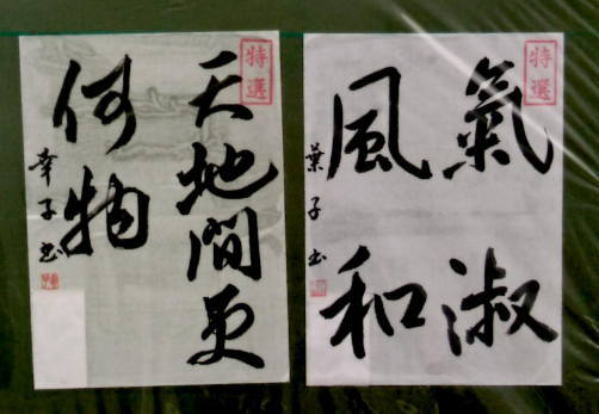 氣淑
風和
葉子書
特選
天地間更
何物
幸子書
特選